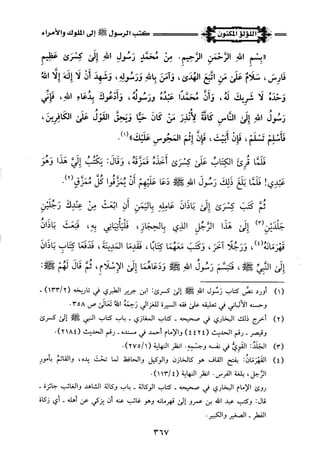 اللؤلؤ المكنون
كتب الرسول ﷺ إلى الملوك والأمراء
«بِسْمِ اللهِ الرَّحْمَنِ الرَّحِيمِ. مِنْ مُحَمَّدٍ رَسُولِ اللهِ إِلَى كِسْرَى عَظِيمِ
فَارِسَ، سَلَامٌ عَلَى مَنِ اتَّبَعَ الْهُدَى، وَآمَنَ بِاللهِ وَرَسُولِهِ، وَشَهِدَ أَنْ لَا إِلَهَ إِلَّا اللهُ
وَحْدَهُ لَا شَرِيكَ لَهُ، وَأَنَّ مُحَمَّدًا عَبْدُهُ وَرَسُولُهُ، وَأَدْعُوكَ بِدُعَاءِ اللهِ، فَإِنِّي
رَسُولُ اللهِ إِلَى النَّاسِ كَافَّةً لِأُنْذِرَ مَنْ كَانَ حَيًّا وَيَحِقَّ الْقَوْلُ عَلَى الْكَافِرِينَ،
فَأَسْلِمْ تَسْلَمْ، فَإِنْ أَبَيْتَ، فَإِنَّ إِثْمَ الْمَجُوسِ عَلَيْكَ»(١).
فَلَمَّا قُرِئَ الكِتَابُ عَلَى كِسْرَى أَخَذَهُ فَمَزَّقَهُ، وَقَالَ: يَكْتُبُ إِلَيَّ هَذَا وَهُوَ
عَبْدِي! فَلَمَّا بَلَغَ ذَلِكَ رَسُولَ اللهِ ﷺ دَعَا عَلَيْهِمْ أَنْ يُمَزَّقُوا كُلَّ مُمَزَّقٍ(٢).
ثُمَّ كَتَبَ كِسْرَى إِلَى بَاذَانَ عَامِلِهِ بِاليَمَنِ أَنِ ابْعَثْ مِنْ عِنْدِكَ رَجُلَيْنِ
جَلْدَيْنِ(٣) إِلَى هَذَا الرَّجُلِ الذِي بِالحِجَازِ، فَلْيَأْتِيَانِي بِهِ، فَبَعَثَ بَاذَانُ
قَهْرَمَانَهُ(٤)، وَرَجُلًا آخَرَ، وَكَتَبَ مَعَهُمَا كِتَابًا، فَقَدِمَا المَدِينَةَ، فَدَفَعَا كِتَابَ بَاذَانَ
إِلَى النَّبِيِّ ﷺ، فَتَبَسَّمَ رَسُولُ اللهِ ﷺ وَدَعَاهُمَا إِلَى الإِسْلَامِ، ثُمَّ قَالَ لَهُمْ ﷺ:
(١) أورد نص كتاب رسول الله ﷺ إلى كسرى: ابن جرير الطبري في تاريخه (١٣٣/٢) -
وحسنه الألباني في تعليقه على فقه السيرة للغزالي رَحِمَهُ اللهُ تَعَالَى ص ٣٥٨.
(٢) أخرج ذلك البخاري في صحيحه - كتاب المغازي - باب كتاب النبي ﷺ إلى كسرى
وقيصر - رقم الحديث (٤٤٢٤) والإمام أحمد في مسنده - رقم الحديث (٢١٨٤).
(٣) الجَلَدُ: القَوِيُّ في نفسه وجسمه. انظر النهاية (٢٧٥/١).
(٤) القَهْرَمَانُ: بفتح القاف هو كالخازن والوكيل والحافظ لما تحت يده، والقائم بأمور
الرجل، بلغة الفرس. انظر النهاية (١١٣/٤).
روى الإمام البخاري في صحيحه - كتاب الوكالة - باب وكالة الشاهد والغائب جائزة -
قال: وكتب عبد الله بن عمرو إلى قهرمانه وهو غائب عنه أن يزكي عن أهله - أي زكاة
الفطر - الصغير والكبير.
٣٦٧